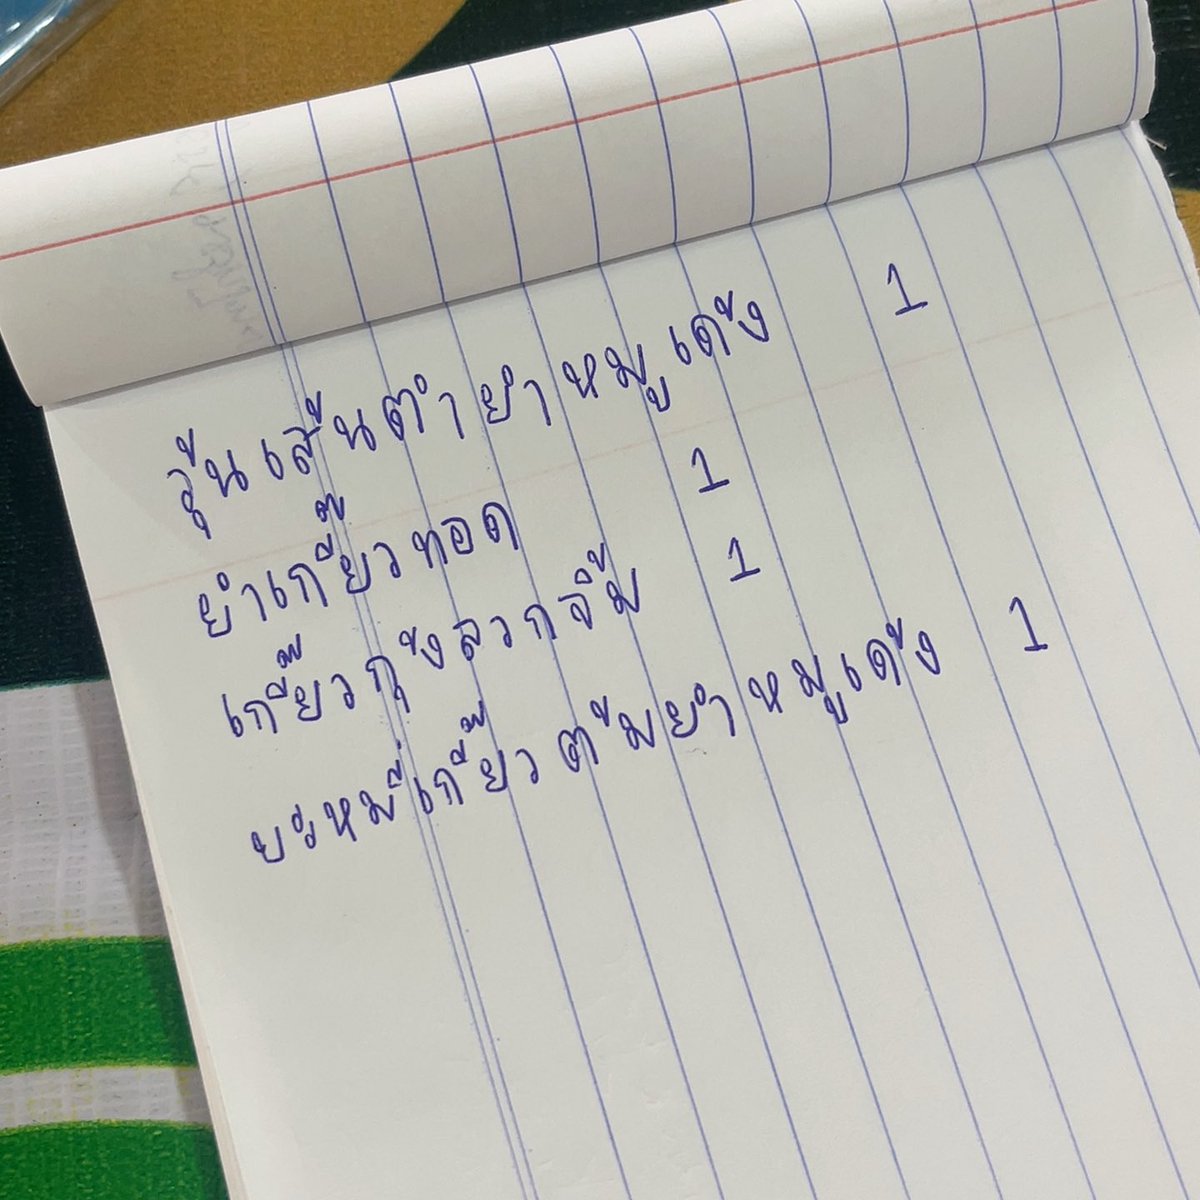 วุ้นเส้นตำยำหมูเด้ง 1
ยำเกี๊ยวทอด 1
เกี๊ยวกุ้งลวกจิ้ม 1
บะหมี่เกี๊ยวต้มยำหมูเด้ง 1